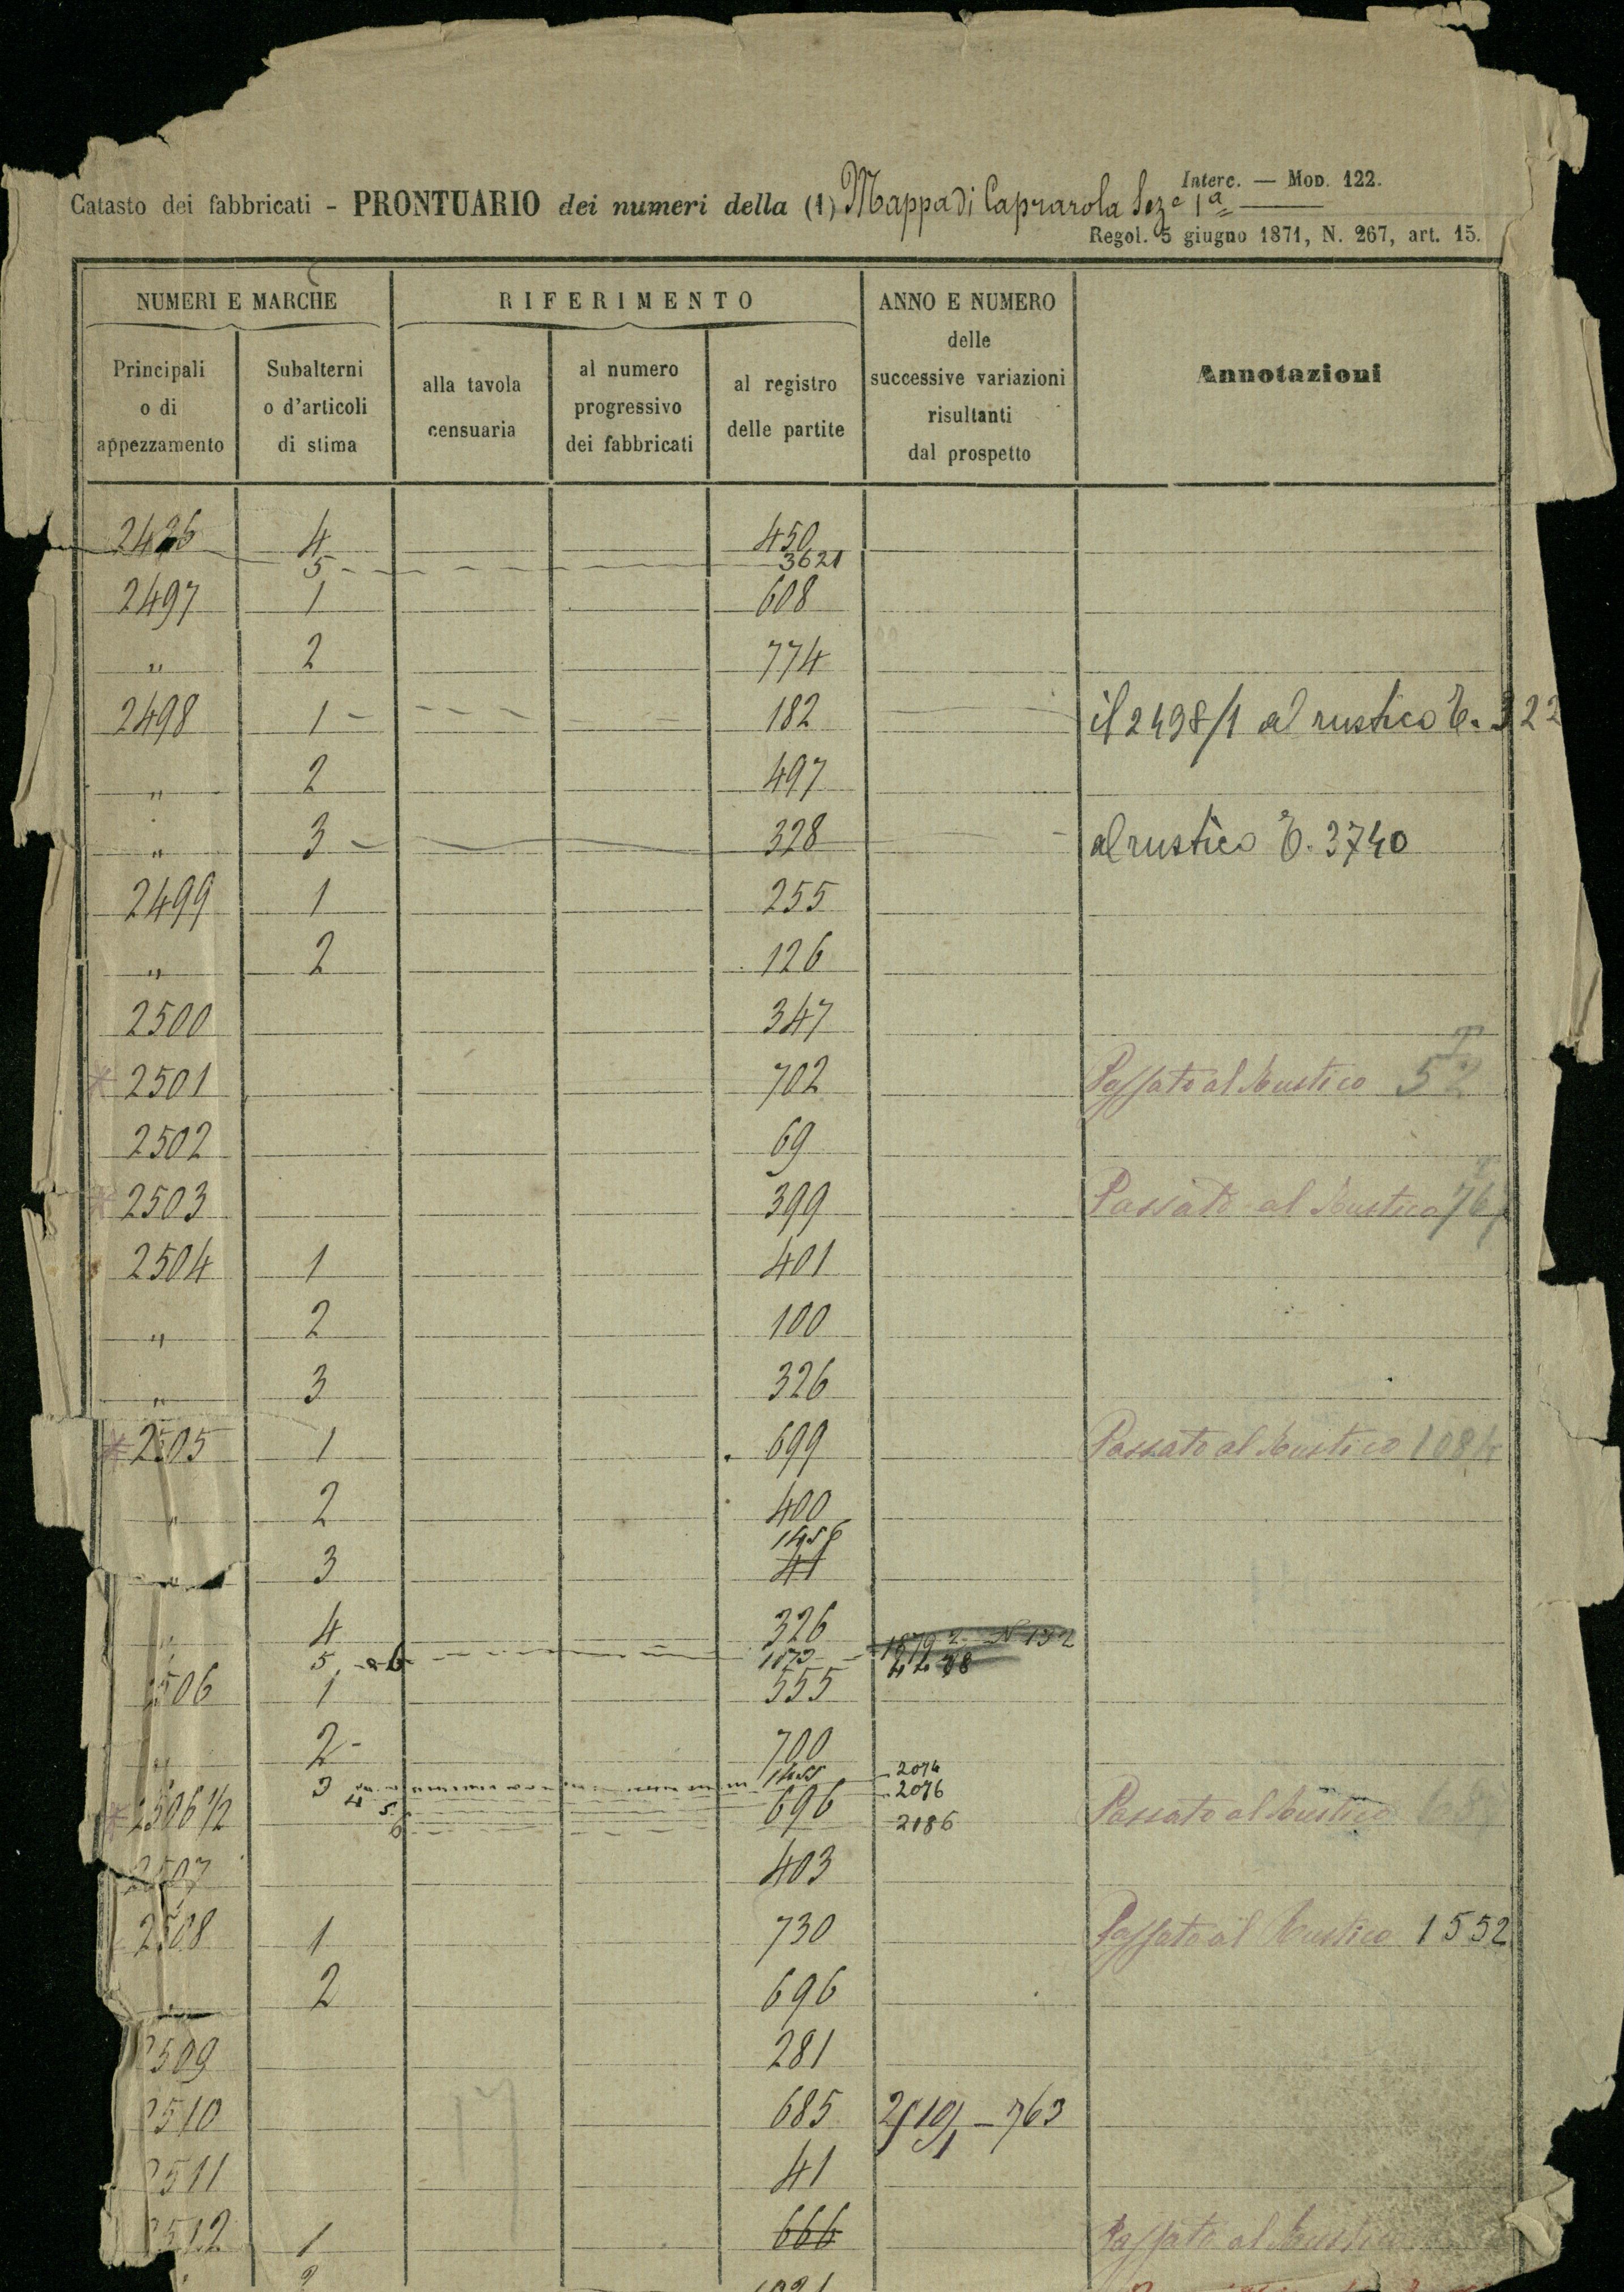 Interc. — Mod. 122.
Catasto dei fabbricati - PRONTUARIO dei numeri della (1) Mappa di Caprarola Seze 1a
Regol. 5 giugno 1871, N. 267, art. 15.
NUMERI E MARCHE RIFERIMENTO ANNO E NUMERO delle successive variazioni risultanti dal prospetto Annotazioni
Principali o di appezzamento Subalterni o d'articoli di stima alla tavola censuaria al numero progressivo dei fabbricati al registro delle partite
4 450
5 3621
2497 1 608
" 2 774
2498 1 182 il 2498/1 al rustico T. 322
" 2 497
" 3 328 al rustico T. 3740
2499 1 255
" 2 126
2500 347
* 2501 702 Passato al Rustico 52
2502 69
* 2503 399 Passato al Rustico 76
2504 1 401
" 2 100
" 3 326
* 2505 1 699 Passato al Rustico 1084
" 2 400
1456
" 3 41
" 4 326 1879 N 132
5 1873
2506 1 555
" 2 700
3 1455 2074
4 5 2076
* 2506 1/2 696 Passato al Rustico
6 2186
2507 403
2508 1 730 Passato al Rustico 1552
" 2 696
2509 281
2510 685 2510/1 - 763
2511 41
2512 1 666 Passato al Rustico
2